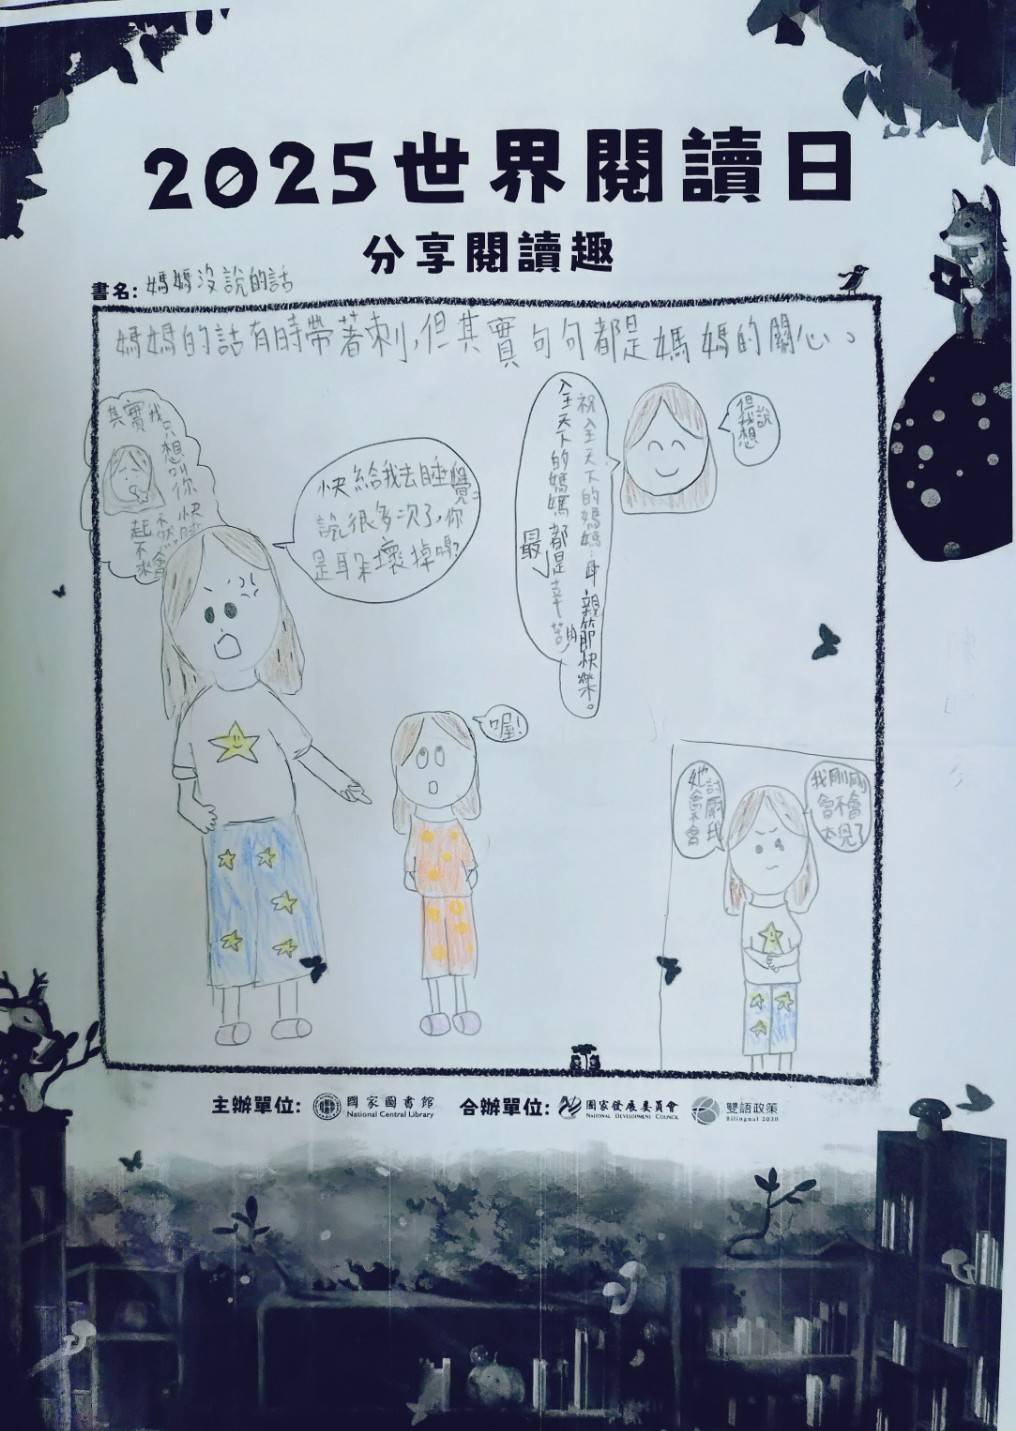 2025世界閱讀日
分享閱讀趣
書名: 媽媽沒說的話
媽媽的話有時帶著刺,但其實句句都是媽媽的關心。
其實我
只想叫你
快睡
不然會
起不來
快給我去睡覺,
說很多次了,你
是耳朵壞掉嗎?
喔!
但我想
說
祝全天下的媽媽:母親節快樂。
全天下的媽媽都是最辛苦
我剛剛
會不會
太兇了
她會不會
討厭我
主辦單位: 國家圖書館
National Central Library
合辦單位: 國家發展委員會
National Development Council
雙語政策
Bilingual 2030